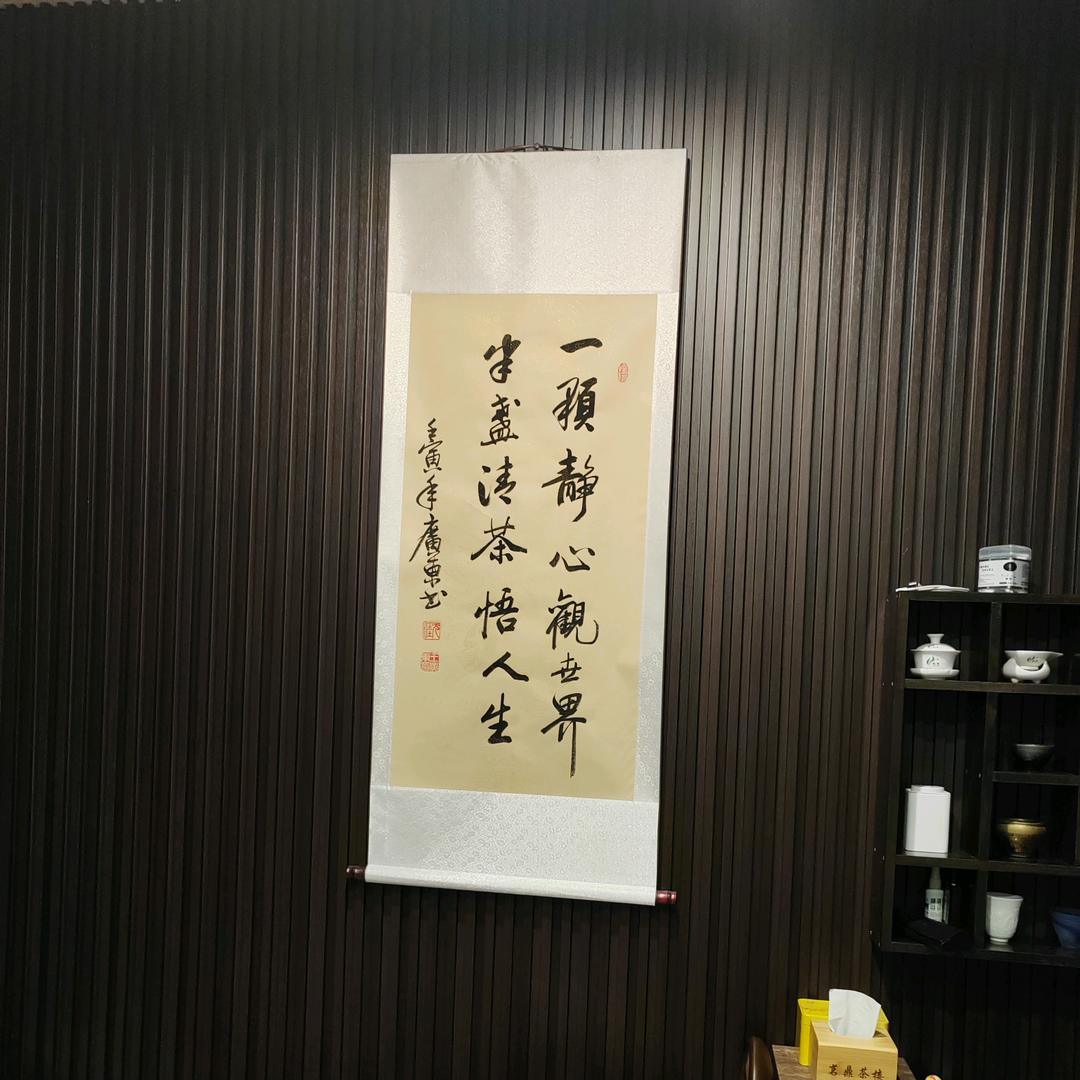 一顆靜心觀世界
半盞清茶悟人生
壬寅年廣東书
茗鼎茶楼